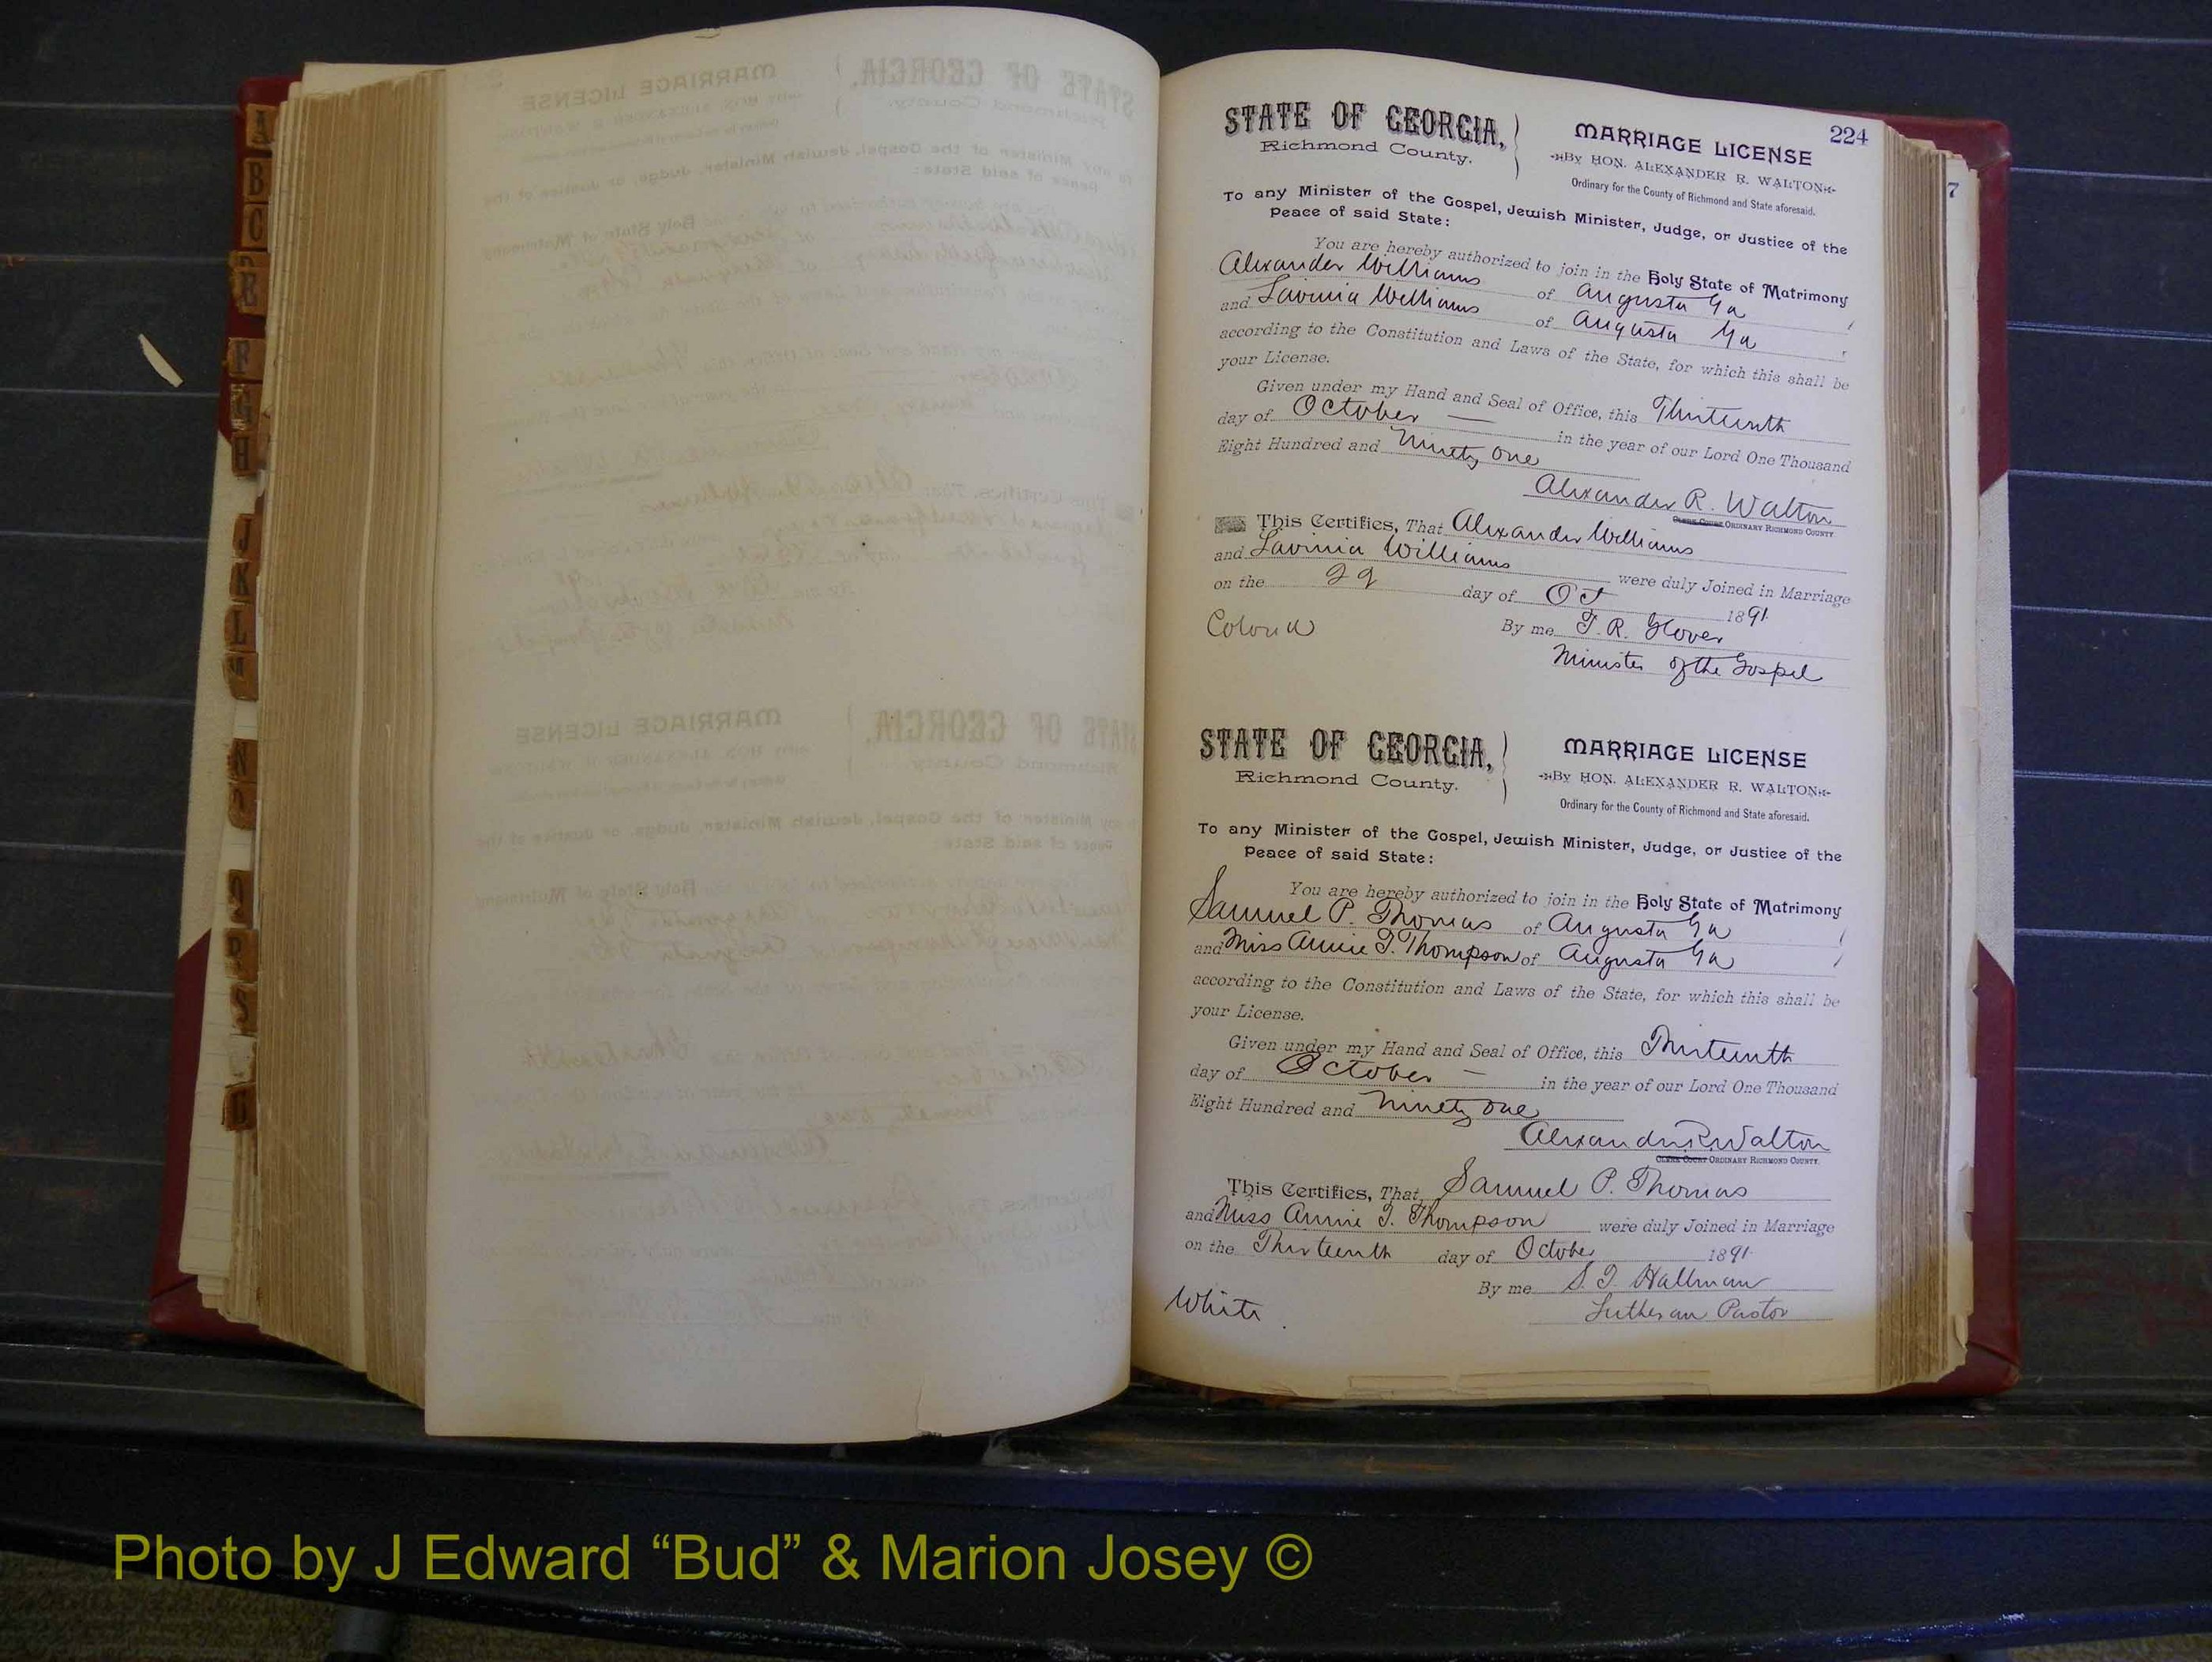 A
B
C
E
F
G
H
J
K
L
N
O
P
S
224
7
STATE OF GEORGIA,
Richmond County.
MARRIAGE LICENSE
By HON. ALEXANDER R. WALTON
Ordinary for the County of Richmond and State aforesaid.
To any Minister of the Gospel, Jewish Minister, Judge, or Justice of the
Peace of said State:
You are hereby authorized to join in the Holy State of Matrimony
Alexander Williams of Augusta Ga
and Lavinia Williams of Augusta Ga
according to the Constitution and Laws of the State, for which this shall be
your License.
Given under my Hand and Seal of Office, this Thirteenth
day of October in the year of our Lord One Thousand
Eight Hundred and Ninety one
Alexander R. Walton
CLERK COURT ORDINARY RICHMOND COUNTY
This Certifies, That Alexander Williams
and Lavinia Williams were duly Joined in Marriage
on the 29 day of Oct 1891.
Colored By me T. R. Glover
Minister of the Gospel
STATE OF GEORGIA,
Richmond County.
MARRIAGE LICENSE
By HON. ALEXANDER R. WALTON
Ordinary for the County of Richmond and State aforesaid.
To any Minister of the Gospel, Jewish Minister, Judge, or Justice of the
Peace of said State:
You are hereby authorized to join in the Holy State of Matrimony
Samuel P. Thomas of Augusta Ga
and Miss Annie I. Thompson of Augusta Ga
according to the Constitution and Laws of the State, for which this shall be
your License.
Given under my Hand and Seal of Office, this Thirteenth
day of October in the year of our Lord One Thousand
Eight Hundred and Ninety one
Alexander R. Walton
CLERK COURT ORDINARY RICHMOND COUNTY.
This Certifies, That Samuel P. Thomas
and Miss Annie I. Thompson were duly Joined in Marriage
on the Thirteenth day of October 1891.
By me S. T. Hallman
White Lutheran Pastor
Photo by J Edward “Bud” & Marion Josey ©